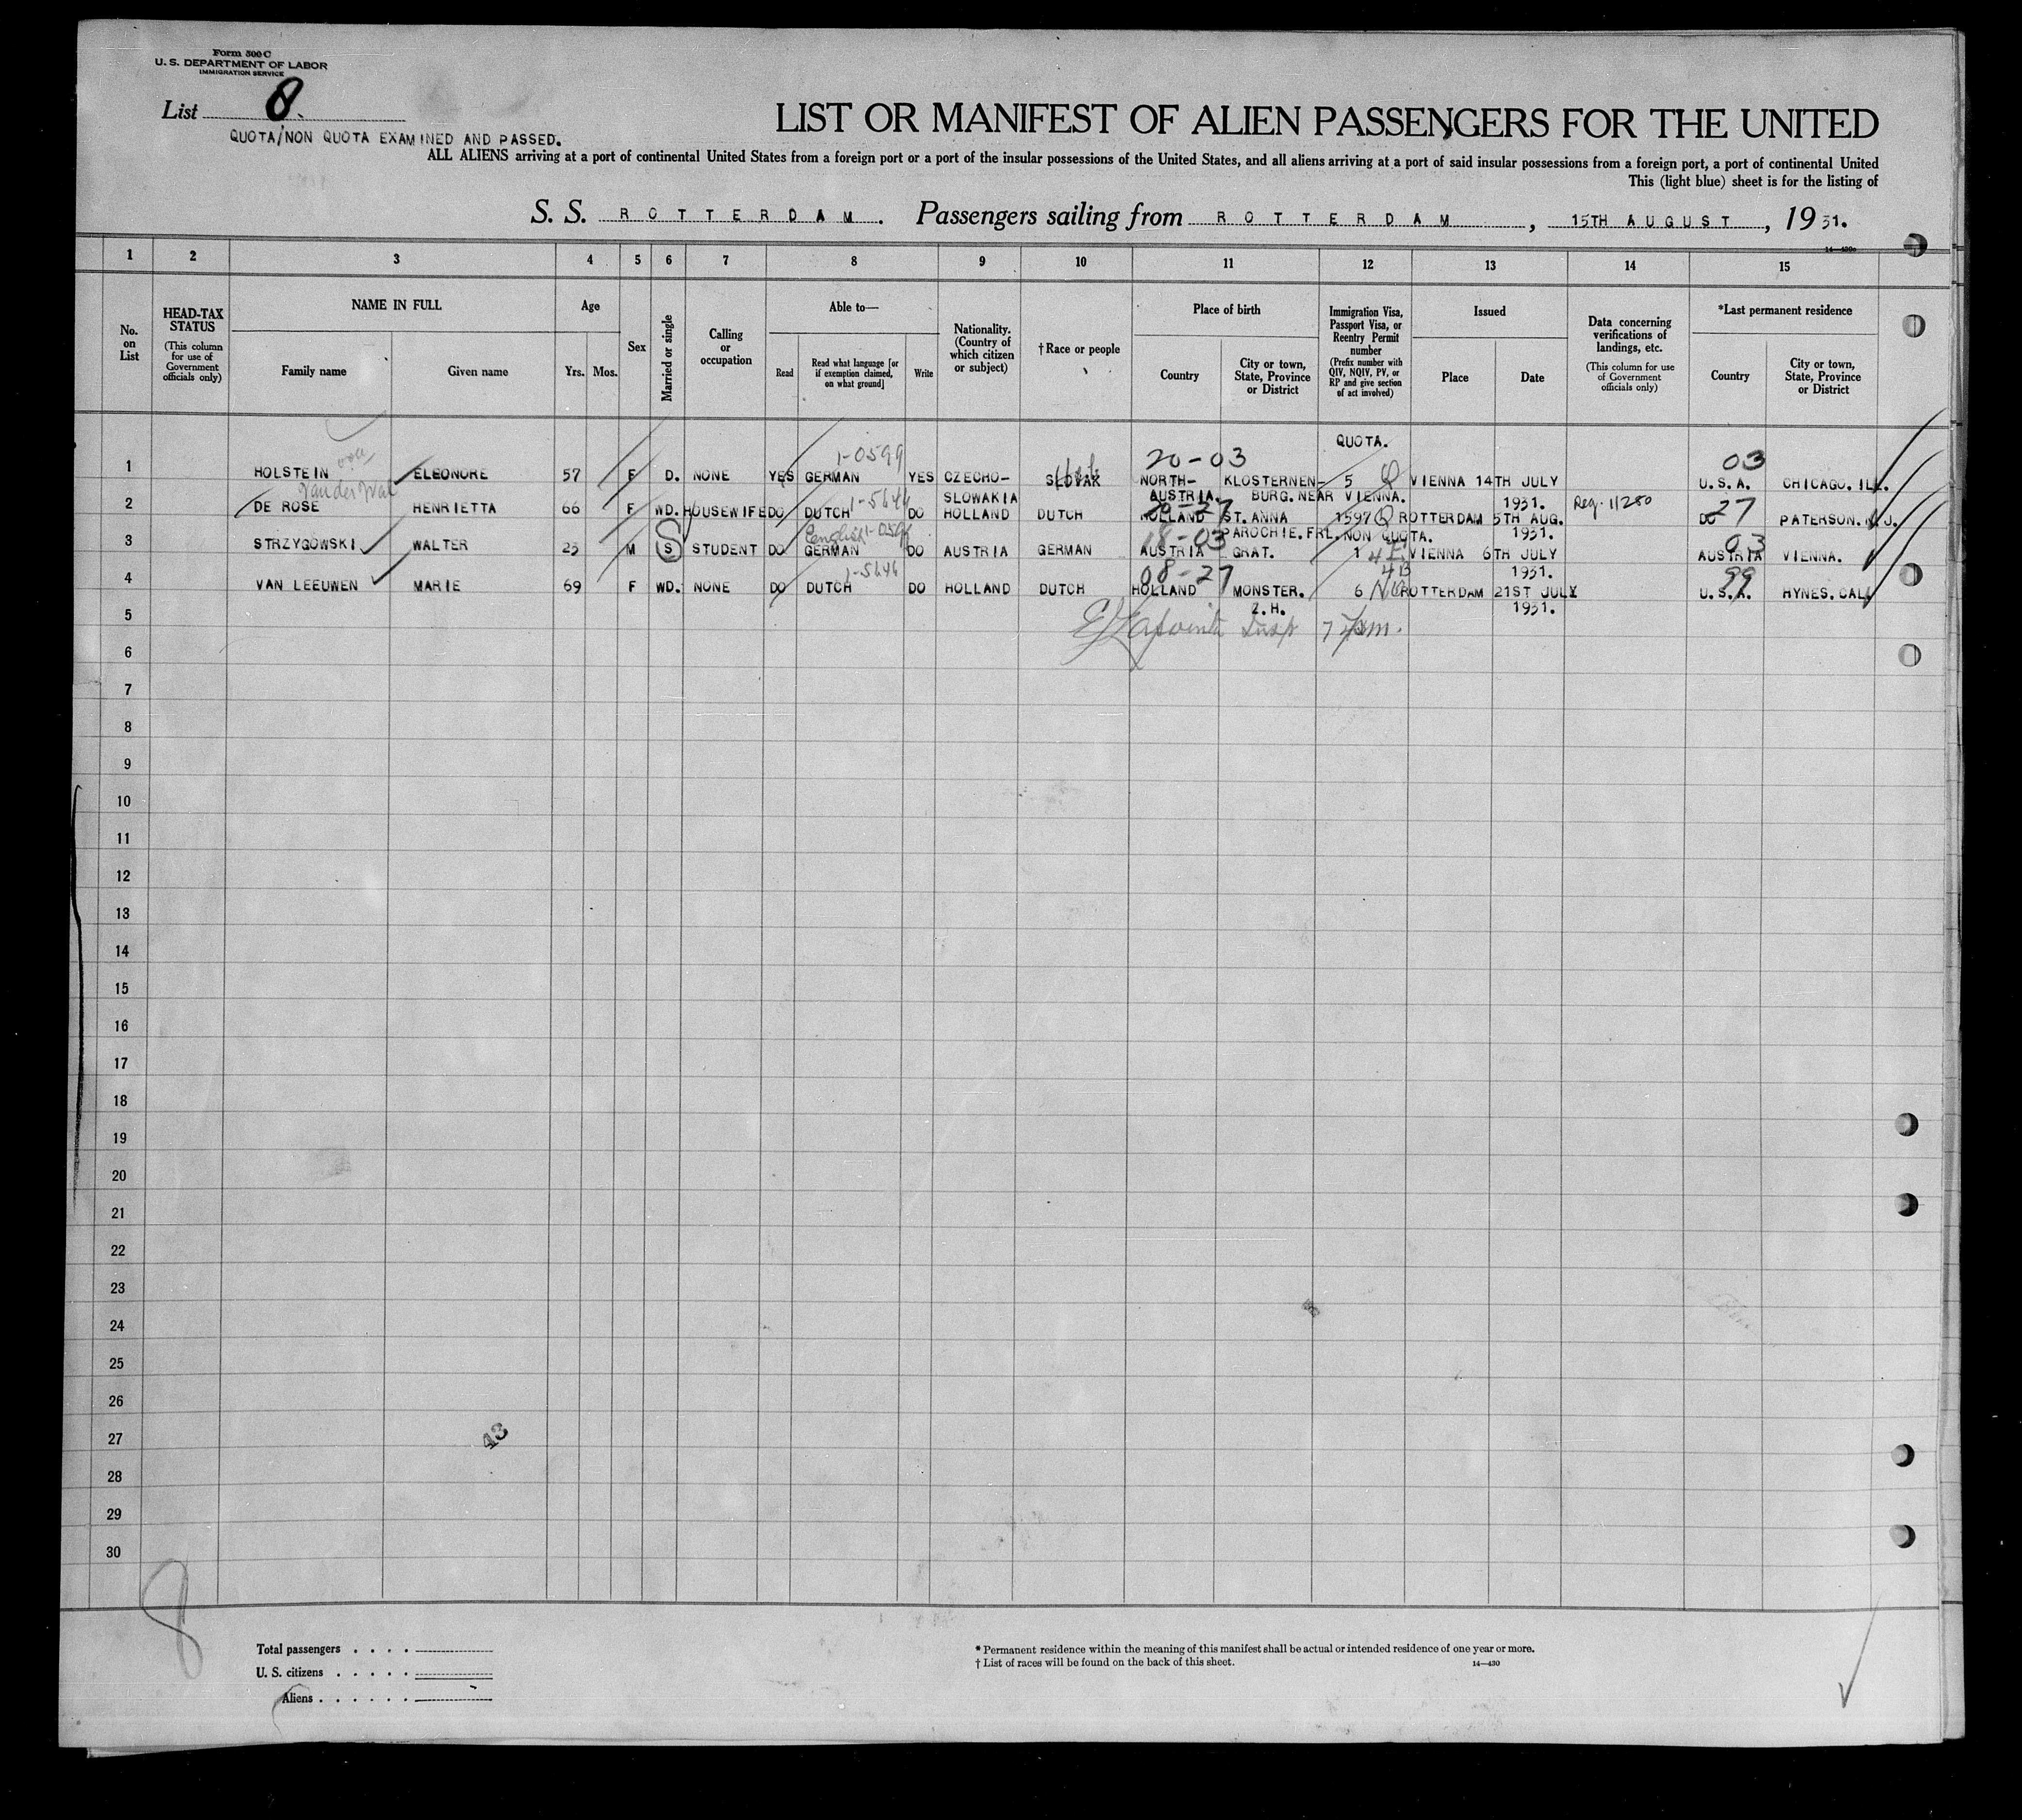 Form 500 C
U. S. DEPARTMENT OF LABOR
IMMIGRATION SERVICE
List 8.
QUOTA/NON QUOTA EXAMINED AND PASSED.
LIST OR MANIFEST OF ALIEN PASSENGERS FOR THE UNITED
ALL ALIENS arriving at a port of continental United States from a foreign port or a port of the insular possessions of the United States, and all aliens arriving at a port of said insular possessions from a foreign port, a port of continental United
This (light blue) sheet is for the listing of
S. S. ROTTERDAM. Passengers sailing from ROTTERDAM, 15TH AUGUST, 1931.
1 2 3 4 5 6 7 8 9 10 11 12 13 14 15
No. on List
HEAD-TAX STATUS
(This column for use of Government officials only)
NAME IN FULL
Family name Given name
Age
Yrs. Mos.
Sex
Married or single
Calling or occupation
Able to—
Read
Read what language [or if exemption claimed, on what ground]
Write
Nationality. (Country of which citizen or subject)
† Race or people
Place of birth
Country
City or town, State, Province or District
Immigration Visa, Passport Visa, or Reentry Permit number
(Prefix number with QIV, NQIV, PV, or RP and give section of act involved)
Issued
Place Date
Data concerning verifications of landings, etc.
(This column for use of Government officials only)
*Last permanent residence
Country
City or town, State, Province or District
QUOTA.
1-0599 20-03 03
1 HOLSTEIN ELEONORE 57 F D. NONE YES GERMAN YES CZECHO- SLOVAK NORTH- KLOSTERNEN- 5 Q VIENNA 14TH JULY U.S.A. CHICAGO. ILL.
van der Wal SLOWAKIA AUSTRIA. BURG. NEAR VIENNA. 1931.
1-5644 20-27 Reg. 11280 27
2 DE ROSE HENRIETTA 66 F WD. HOUSEWIFE DO DUTCH DO HOLLAND DUTCH HOLLAND ST. ANNA 1597 Q ROTTERDAM 5TH AUG. DO PATERSON. N.J.
English 1-0599 18-03 PAROCHIE. FRL. NON QUOTA. 1931. 03
3 STRZYGOWSKI WALTER 23 M S STUDENT DO GERMAN DO AUSTRIA GERMAN AUSTRIA GRAT. 1 4E VIENNA 6TH JULY AUSTRIA VIENNA.
1-5644 08-27 4B 1931. 99
4 VAN LEEUWEN MARIE 69 F WD. NONE DO DUTCH DO HOLLAND DUTCH HOLLAND MONSTER. 6 NQ ROTTERDAM 21ST JULY U.S.A. HYNES. CAL.
Z.H. 1931.
5
Insp
6
7
8
9
10
11
12
13
14
15
16
17
18
19
20
21
22
23
24
25
26
27
43
28
29
30
8
Total passengers
U. S. citizens
Aliens
* Permanent residence within the meaning of this manifest shall be actual or intended residence of one year or more.
† List of races will be found on the back of this sheet.
14—430